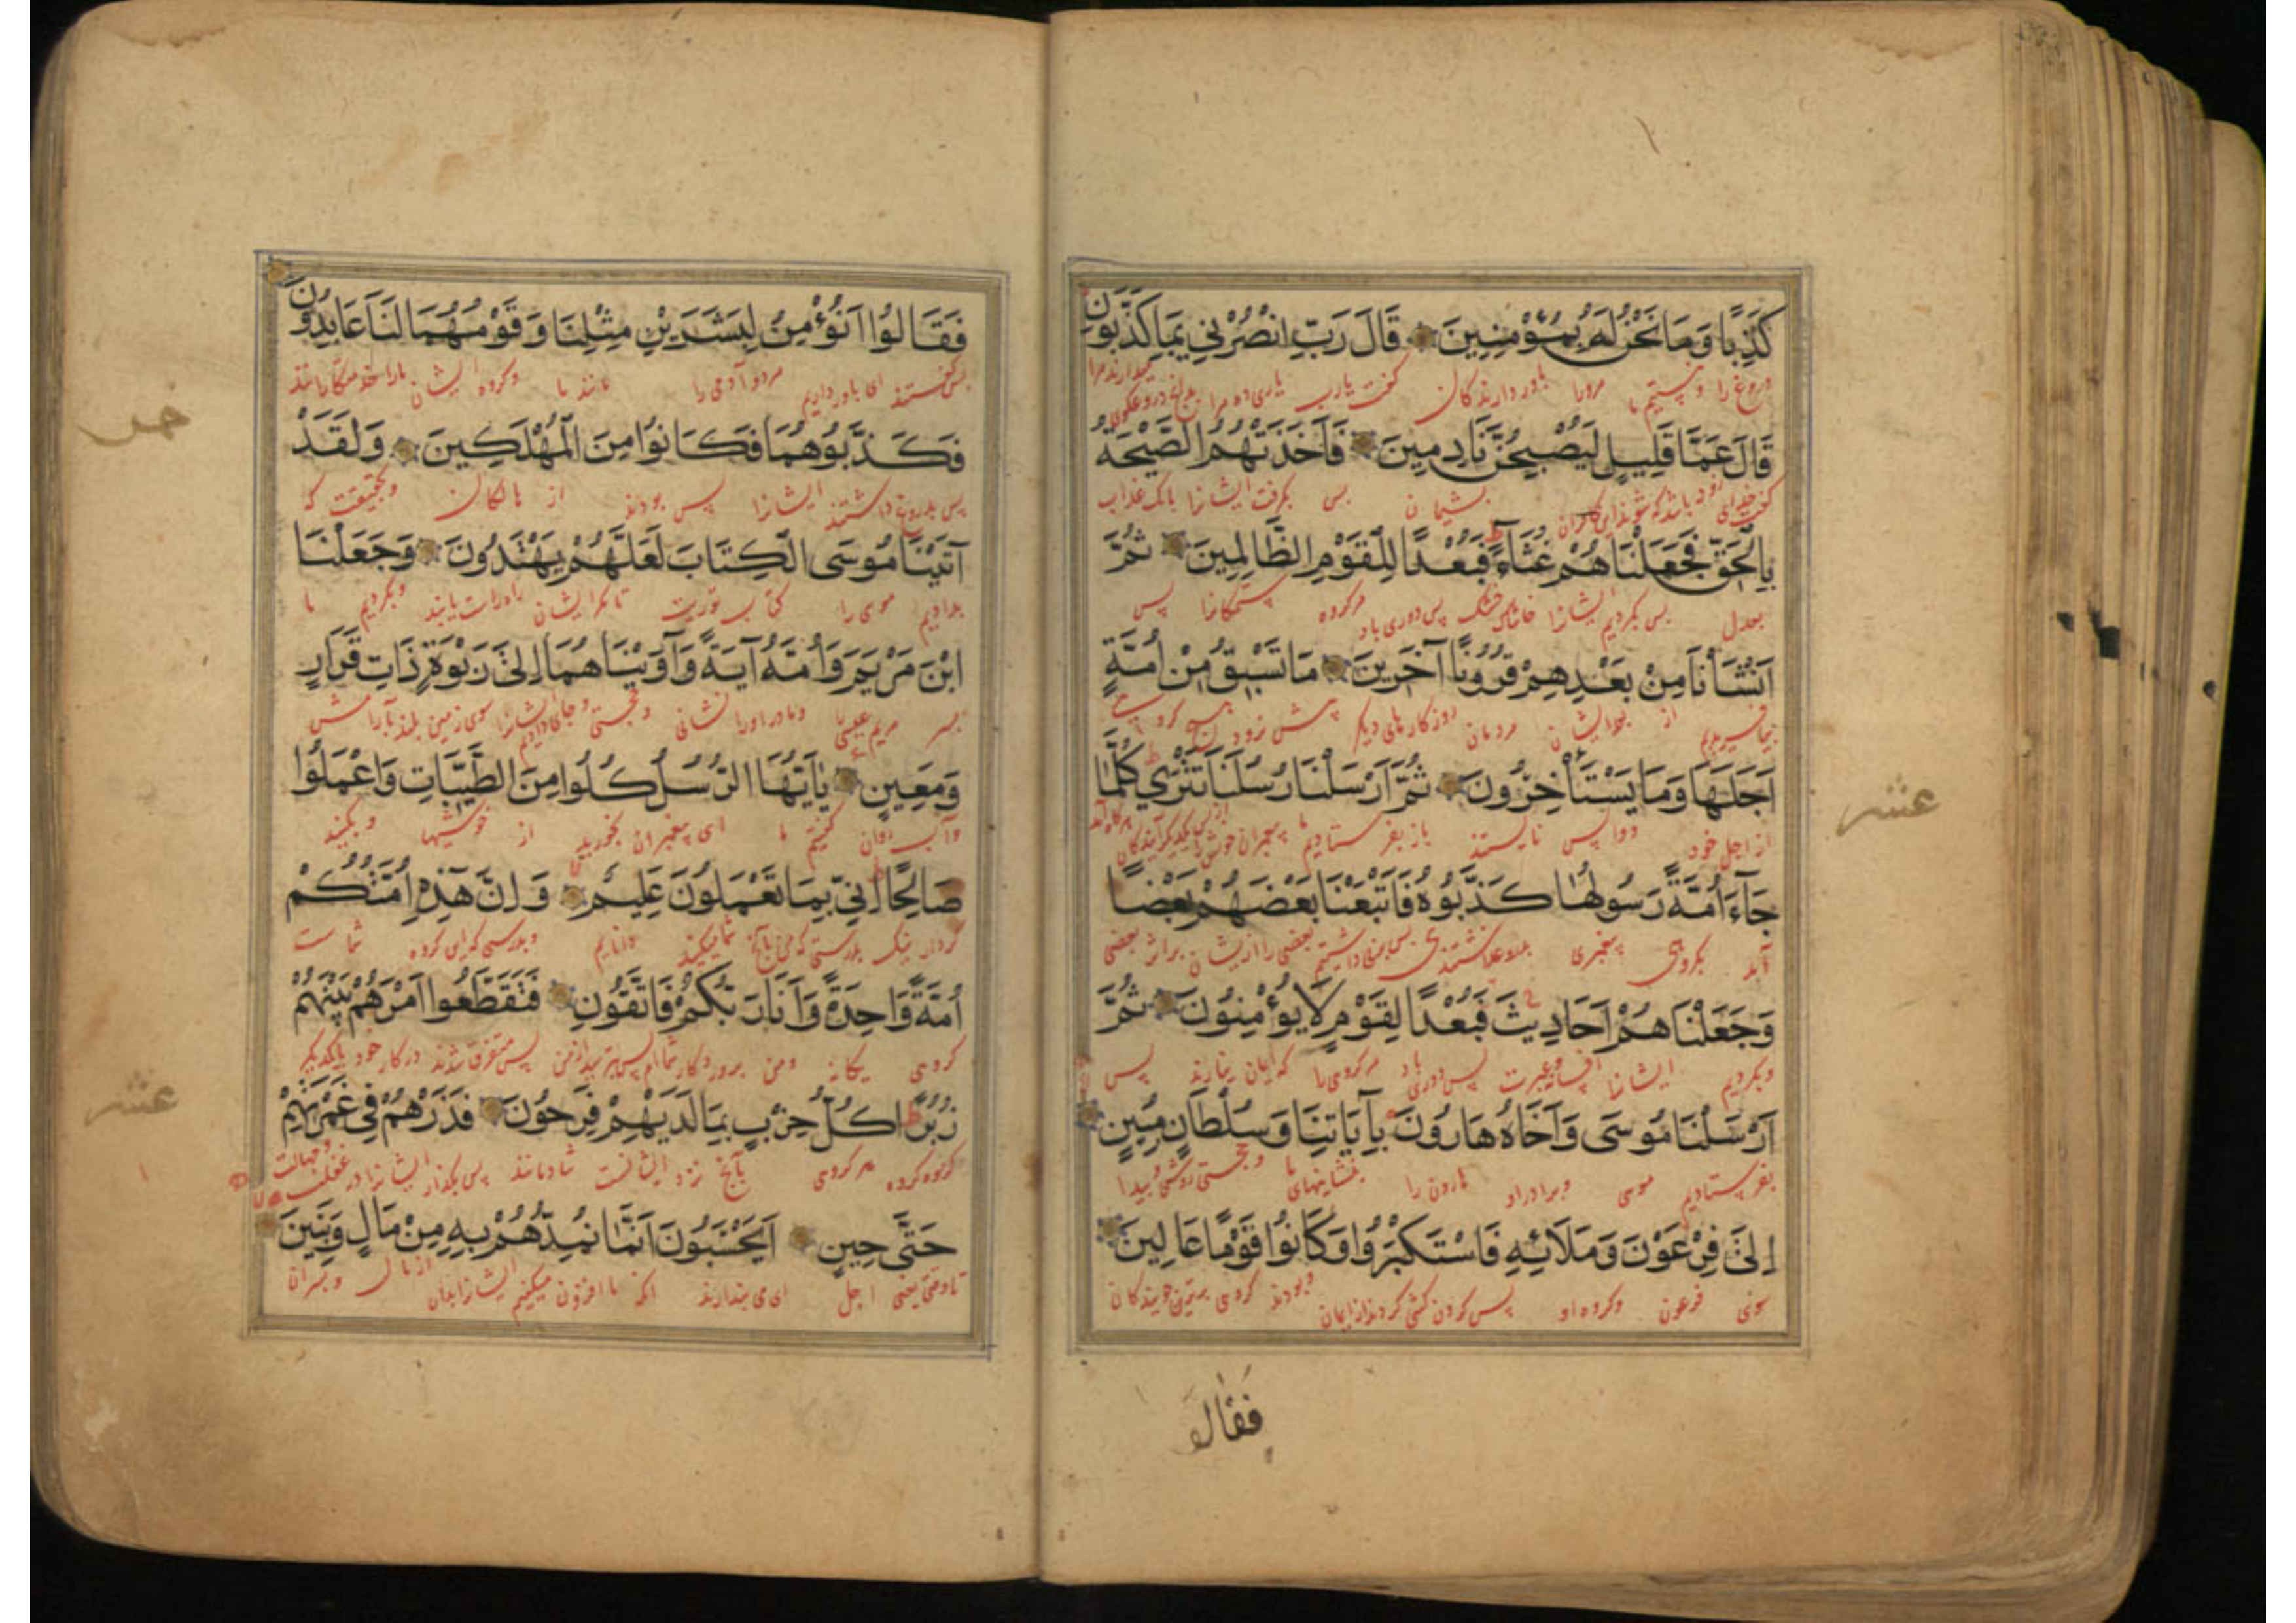 كَذِبًا وَمَا نَحْنُ لَهُ بِمُؤْمِنِينَ قَالَ رَبِّ انْصُرْنِي بِمَا كَذَّبُونِ
دروغ را و نیستیم ما مرورا باور دارندکان گفت یارب یاری ده مرا
قَالَ عَمَّا قَلِيلٍ لَيُصْبِحُنَّ نَادِمِينَ فَأَخَذَتْهُمُ الصَّيْحَةُ
پشیمان پس بگرفت ایشانرا بانک عذاب
بِالْحَقِّ فَجَعَلْنَاهُمْ غُثَاءً فَبُعْدًا لِلْقَوْمِ الظَّالِمِينَ ثُمَّ
بعدل پس بکردیم ایشانرا خاشاک خشک پس دوری باد مرکروه ستمکارانرا پس
أَنْشَأْنَا مِنْ بَعْدِهِمْ قُرُونًا آخَرِينَ مَا تَسْبِقُ مِنْ أُمَّةٍ
بیافریدیم از بعد ایشان مردمان روزکارهای دیکر پیش نرود هیچ کروه
أَجَلَهَا وَمَا يَسْتَأْخِرُونَ ثُمَّ أَرْسَلْنَا رُسُلَنَا تَتْرَي كُلَّمَا
از اجل خود و واپس نایستند باز بفرستادیم پیغمبران خویش را
جَآءَ أُمَّةً رَسُولُهَا كَذَّبُوهُ فَأَتْبَعْنَا بَعْضَهُمْ بَعْضًا
آید بکروهی پیغمبری بعضی را از ایشان براثر بعضی
وَجَعَلْنَاهُمْ أَحَادِيثَ فَبُعْدًا لِقَوْمٍ لَا يُؤْمِنُونَ ثُمَّ
وبکردیم ایشانرا پس دوری باد مرکروهی را که ایمان نیارند پس
أَرْسَلْنَا مُوسَى وَأَخَاهُ هَارُونَ بِآيَاتِنَا وَسُلْطَانٍ مُبِينٍ
بفرستادیم موسی وبرادر او هارون را بنشانیهای ما وبحجتی روشن و پیدا
إِلَى فِرْعَوْنَ وَمَلَائِهِ فَاسْتَكْبَرُوا وَكَانُوا قَوْمًا عَالِينَ
سوی فرعون وکروه او پس کردن کشی کردند از ایمان وبودند کروهی برتری جویندکان
فقالو
عشر
فَقَالُوا أَنُؤْمِنُ لِبَشَرَيْنِ مِثْلِنَا وَقَوْمُهُمَا لَنَا عَابِدُونَ
پس گفتند ای باور داریم مر دو آدمی را مانند ما وکروه ایشان مارا خدمتکارانند
فَكَذَّبُوهُمَا فَكَانُوا مِنَ الْمُهْلَكِينَ وَلَقَدْ
پس بدروغ داشتند ایشانرا پس بودند از هالکان وبحقیقت که
آتَيْنَا مُوسَى الْكِتَابَ لَعَلَّهُمْ يَهْتَدُونَ وَجَعَلْنَا
بدادیم موسی را کتاب توریت تا مکر ایشان راه راست یابند وبکردیم ما
ابْنَ مَرْيَمَ وَأُمَّهُ آيَةً وَآوَيْنَاهُمَا إِلَى رَبْوَةٍ ذَاتِ قَرَارٍ
پسر مریم عیسی را ومادر اورا نشانی وحجتی وجای دادیم ایشانرا سوی زمین بلند بآرامش
وَمَعِينٍ يَا أَيُّهَا الرُّسُلُ كُلُوا مِنَ الطَّيِّبَاتِ وَاعْمَلُوا
وآب روان گفتیم ما ای پیغمبران بخورید از خوشیها وبکنید
صَالِحًا إِنِّي بِمَا تَعْمَلُونَ عَلِيمٌ وَإِنَّ هَذِهِ أُمَّتُكُمْ
کردار نیک بدرستی که من بآنچ شما میکنید دانایم وبدرستی که این کروه شماست
أُمَّةً وَاحِدَةً وَأَنَا رَبُّكُمْ فَاتَّقُونِ فَتَقَطَّعُوا أَمْرَهُمْ بَيْنَهُمْ
کروهی یکانه ومن پروردکار شماام پس بترسید از من پس متفرق شدند در کار خود بایکدیکر
زُبُرًا كُلُّ حِزْبٍ بِمَا لَدَيْهِمْ فَرِحُونَ فَذَرْهُمْ فِي غَمْرَتِهِمْ
کروه کروه هر کروهی بآنچ نزد ایشانست شادمانند پس بکذار ایشانرا در غفلت وجهالت
حَتَّى حِينٍ أَيَحْسَبُونَ أَنَّمَا نُمِدُّهُمْ بِهِ مِنْ مَالٍ وَبَنِينَ
تا وقتی یعنی اجل ای می پندارند آنک ما افزون میکنیم ایشانرا بدان از مال وپسران
خمس
عشر